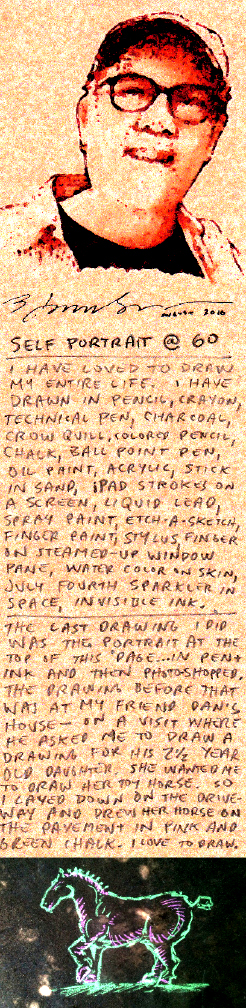 SELF PORTRAIT @ 60
I HAVE LOVED TO DRAW
MY ENTIRE LIFE. I HAVE
DRAWN IN PENCIL, CRAYON,
TECHNICAL PEN, CHARCOAL,
CROW QUILL, COLORED PENCIL,
CHALK, BALL POINT PEN,
OIL PAINT, ACRYLIC, STICK
IN SAND, iPAD STROKES ON
A SCREEN, LIQUID LEAD,
SPRAY PAINT, ETCH-A-SKETCH,
FINGER PAINT, STYLUS, FINGER
ON STEAMED-UP WINDOW
PANE, WATER COLOR ON SKIN,
JULY FOURTH SPARKLER IN
SPACE, INVISIBLE INK.
THE LAST DRAWING I DID
WAS THE PORTRAIT AT THE
TOP OF THIS PAGE...IN PEN+
INK AND THEN PHOTOSHOPPED.
THE DRAWING BEFORE THAT
WAS AT MY FRIEND DAN'S
HOUSE— ON A VISIT WHERE
HE ASKED ME TO DRAW A
DRAWING FOR HIS 2½ YEAR
OLD DAUGHTER. SHE WANTED ME
TO DRAW HER TOY HORSE. SO
I LAYED DOWN ON THE DRIVE
WAY AND DREW HER HORSE ON
THE PAVEMENT IN PINK AND
GREEN CHALK. I LOVE TO DRAW.